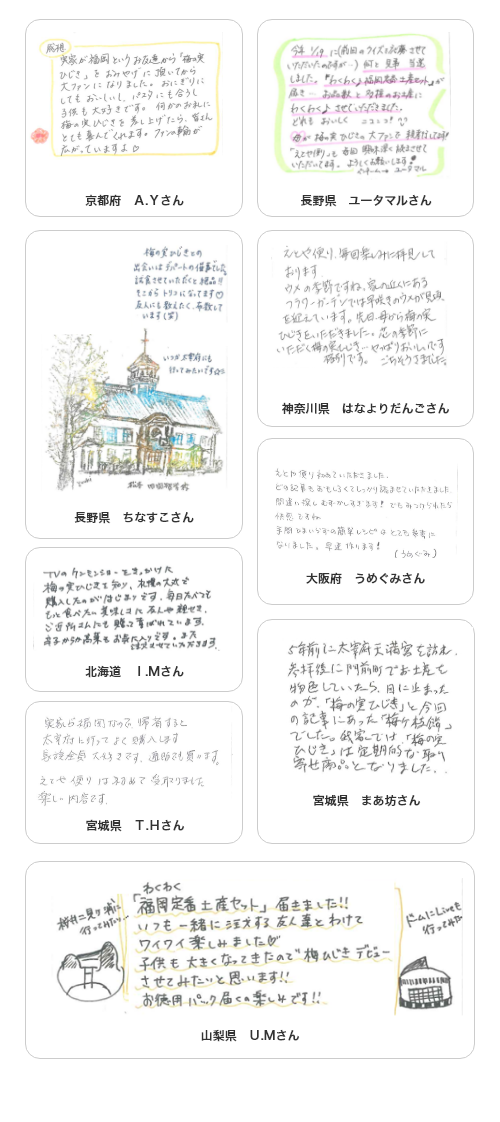 実家が福岡というお友達から「梅の実
ひじき」をおみやげに頂いてから
大ファンになりました。おにぎりに
してもおいしいし、パスタにも合うし
子供も大好きです。何かのお礼に
梅の実ひじきを差し上げたら、皆さん
とても喜んでくれます。ファンの輪が
広がっていますよ♡
京都府　A.Yさん
今年
しました。『わくわく♪福岡定番土産セット』が
わくわく♪させていただきました。
どれもおいしく
母が梅の実ひじきの大ファンで
「えとや便り」も毎回興味深く読ませて
いただいてます。よろしくお願いします!
長野県　ユータマルさん
梅の実ひじきとの
出会いはデパートの催事でした。
試食させていただくと絶品!!
そこからトリコになってます♡
友人にも教えたく、布教して
います(笑)
いつか太宰府にも
行ってみたいです☆
長野県　ちなすこさん
えとや便り、毎回楽しみに拝見して
おります
ウメの季節ですね、家の近くにある
フラワーガーデンでは早咲きのウメが見頃
を迎えています。先日、母から梅の実
ひじきをいただきました。この季節に
いただく梅の実ひじき…やっぱりおいしいです
格別です。ごちそうさまでした。
神奈川県　はなよりだんごさん
えとや便り初めていただきました。
どの記事もおもしろくてしっかり読ませていただきました
間違い探しむずかしすぎます! でもみつけられたな
快感ですね
手間ひまいらずの簡単レシピはとても参考に
なりました。早速作ります!
(うめぐみ)
大阪府　うめぐみさん
TVのケンミンショーをきっかけに
梅の実ひじきを知り、札幌の大丸で
購入したのがはじまりです。毎日たべても
もっと食べたい美味しさに友人や親せき、
ご近所さんにも贈って喜ばれています。
北海道　I.Mさん
実家が福岡なので帰省すると
太宰府に行ってよく購入します
家族全員大好きです。通販でも買います。
えとや便りははじめて受取りました
楽しい内容です。
宮城県　T.Hさん
5年前に太宰府天満宮を訪れ、
参拝後に門前町でお土産を
物色していたら、目に止まった
のが、「梅の実ひじき」と今回
の記事にあった「梅ヶ枝餅」
でした。我家では、「梅の実
ひじき」は定期的な取り
寄せ商品となりました。
宮城県　まあ坊さん
桜井二見ヶ浦に
行ってみたい…
わくわく
「福岡定番土産セット」届きました!!
いつも一緒に注文する友人達とわけて
ワイワイ楽しみました
子供も大きくなってきたので梅ひじきデビュー
させてみたいと思います!!
お徳用パック届くの楽しみです!!
ドームにLiveも
行ってみたい
山梨県　U.Mさん